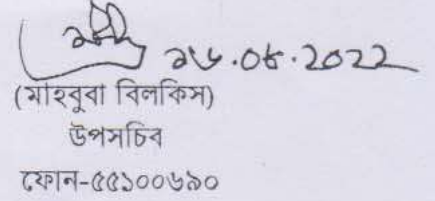 ২৬.০৪.2022
(মাহবুবা বিলকিস)
উপসচিব
ফোন-৫৫১০০৬৯০